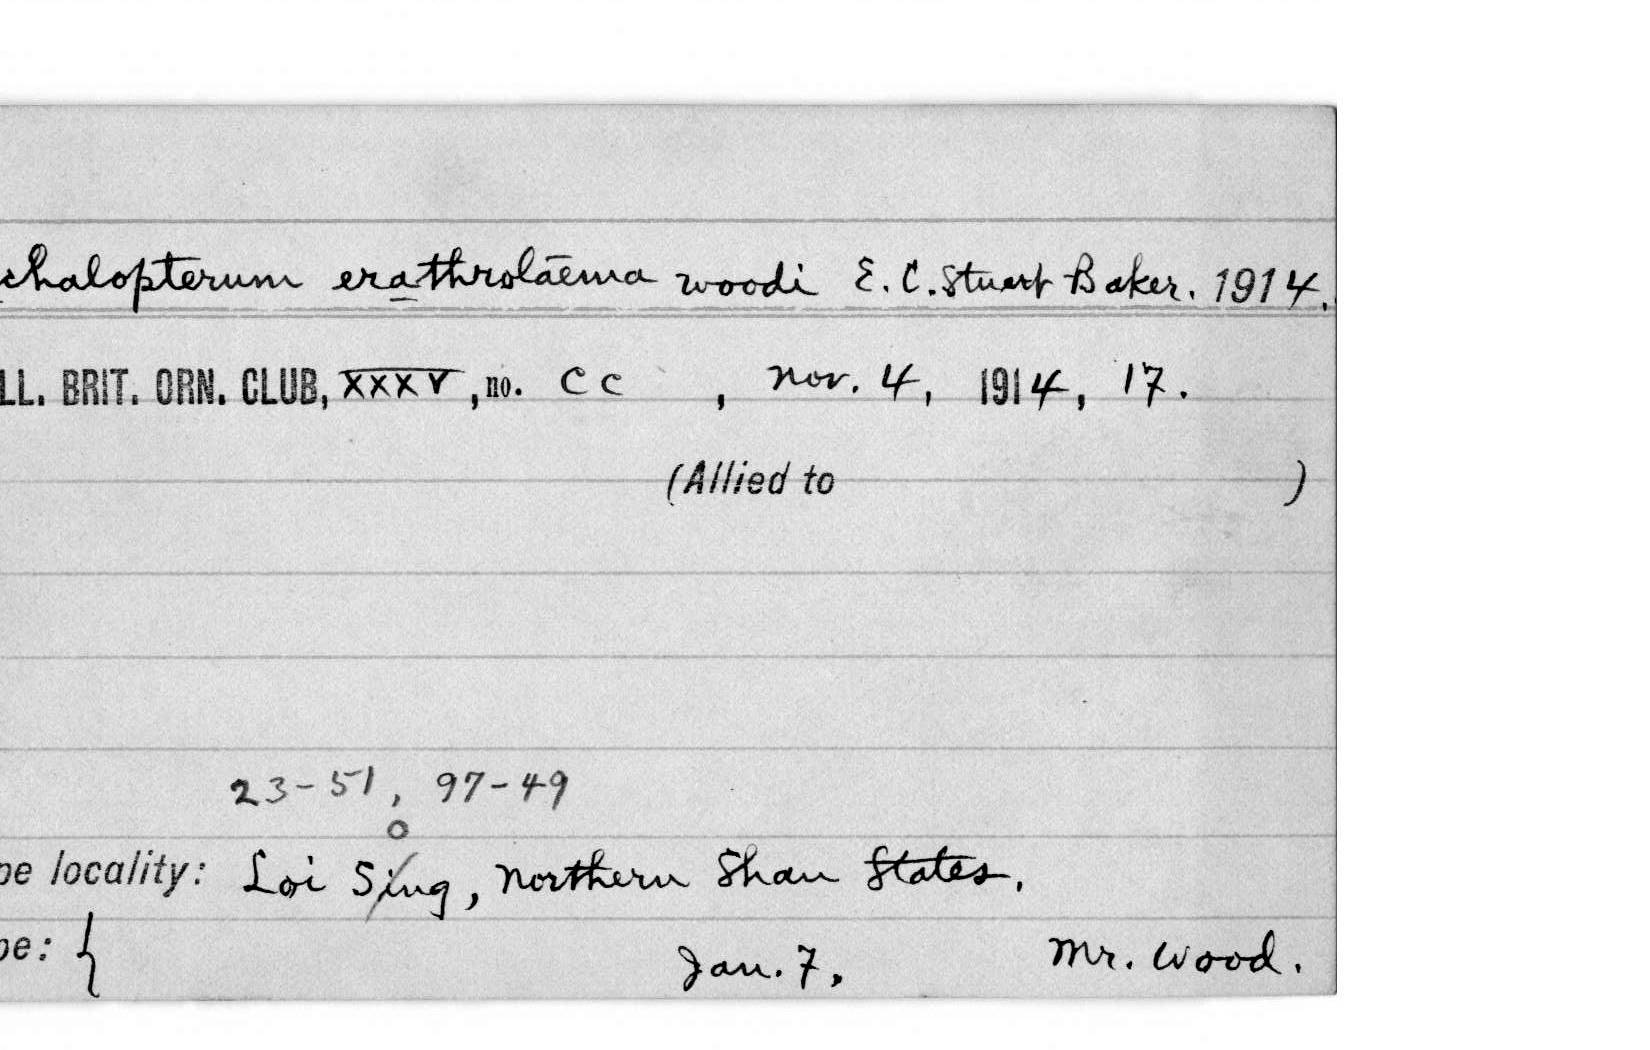 chalopterum erathrolaema woodi E. C. Stuart Baker. 1914.
LL. BRIT. ORN. CLUB, XXXV, no. CC , Nov. 4, 1914, 17.
(Allied to )
23-51, 97-49
o
pe locality: Loi Sing, Northern Shan States.
pe: { Jan. 7, Mr. Wood.